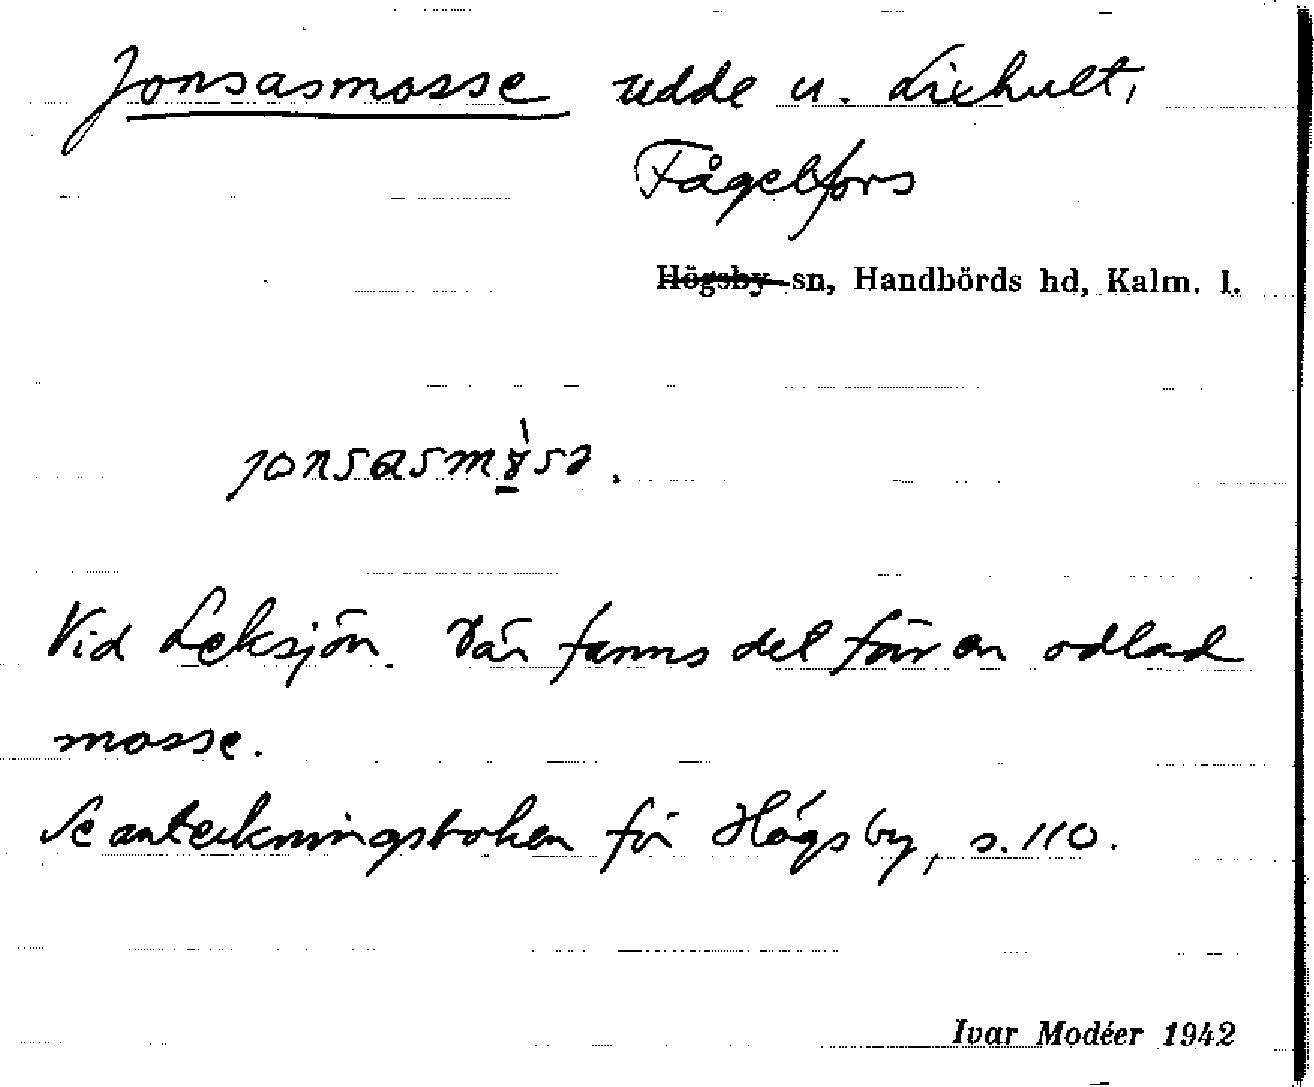 Jonsasmosse udde u. Lixhult,
Fågelfors
Högsby sn, Handbörds hd, Kalm. l.
jonsasmòsə.
Vid Leksjön. Där fanns del förr en odlad
mosse.
Se anteckningsboken för Högsby, s. 110.
Ivar Modéer 1942